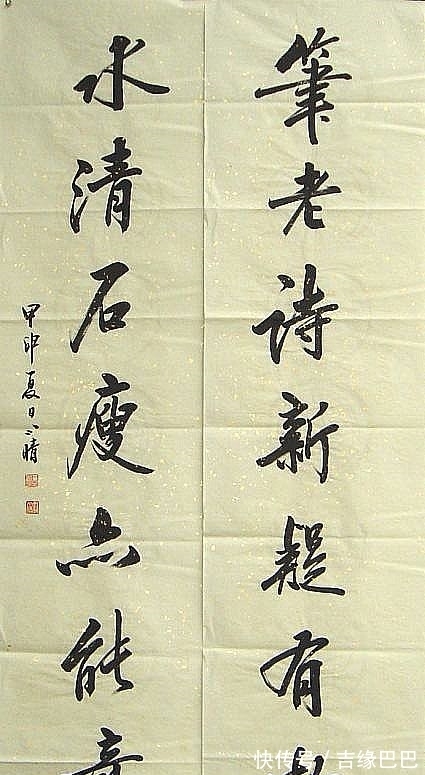 筆老詩新疑有
水清石瘦亦能
甲申夏日晴
快传号/吉缘巴巴